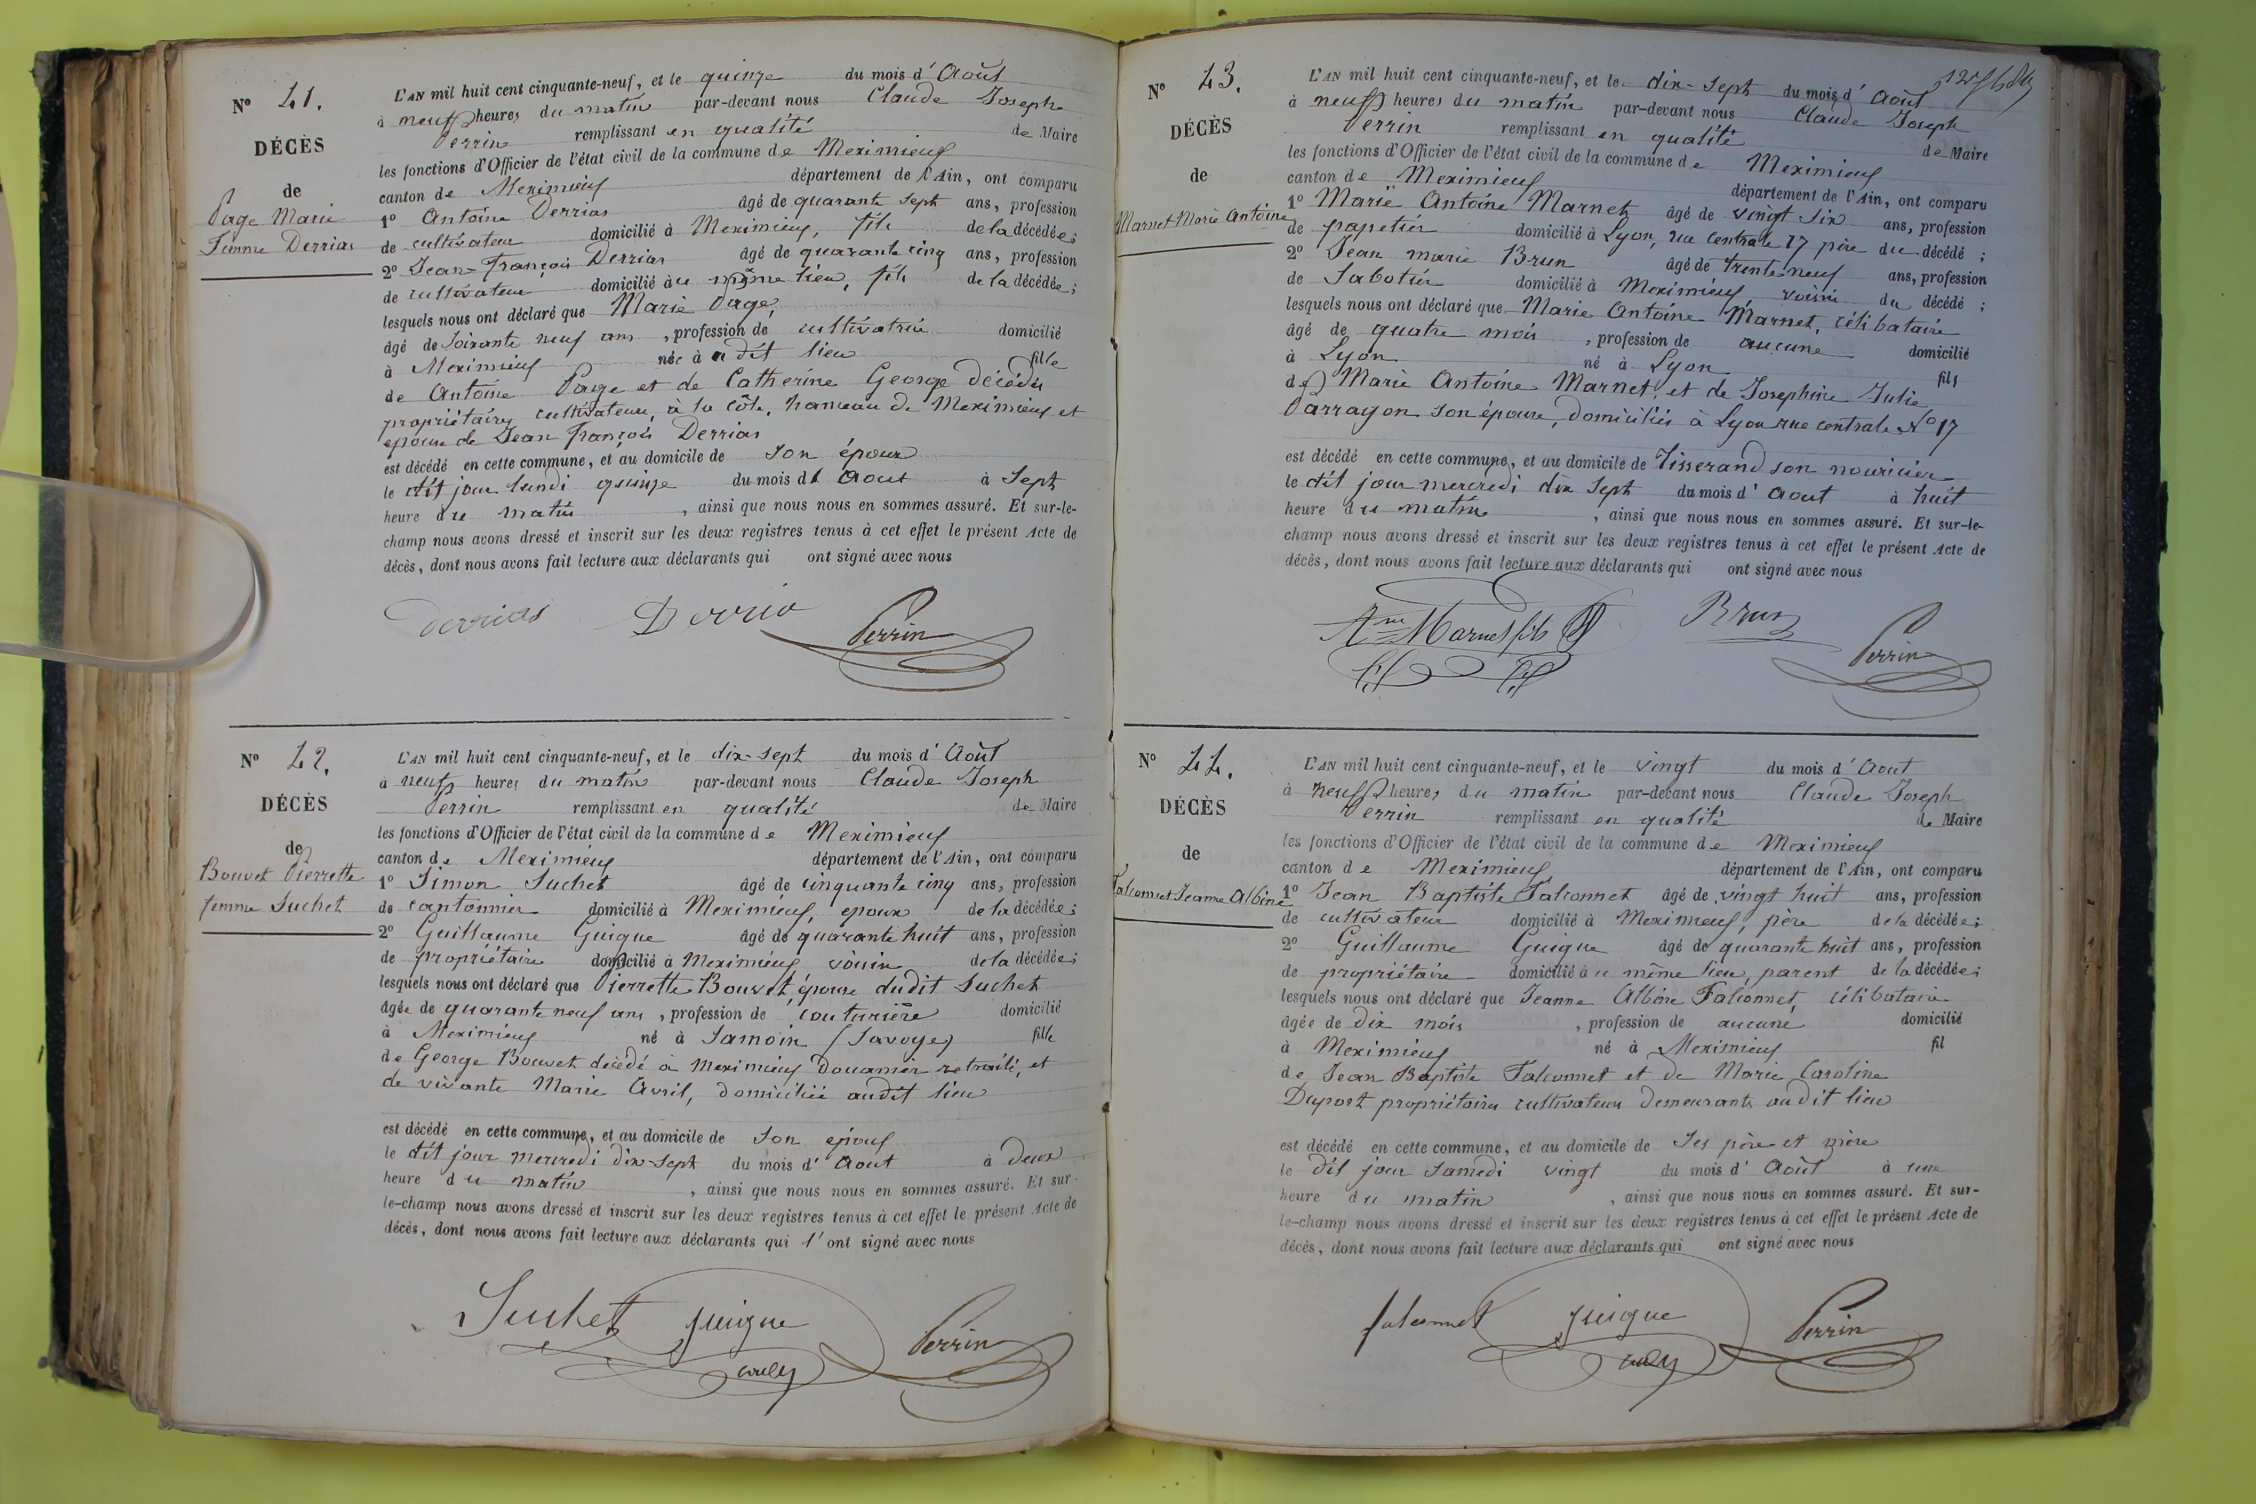 N° 41.
DÉCÈS
de
Page Marie
Femme Derrias
L'AN mil huit cent cinquante-neuf, et le quinze du mois d'Août
à neuf heures du matin par-devant nous Claude Joseph
Perrin remplissant en qualité de Maire
les fonctions d'Officier de l'état civil de la commune de Meximieux
canton de Meximieux département de l'Ain, ont comparu
1° Antoine Derrias âgé de quarante sept ans, profession
de cultivateur domicilié à Meximieux, fils de la décédée;
2° Jean-François Derrias âgé de quarante cinq ans, profession
de cultivateur domicilié au même lieu, fils de la décédée;
lesquels nous ont déclaré que Marie Page,
âgé de soixante neuf ans, profession de cultivatrice domicilié
à Meximieux née à u dit lieu fille
de Antoine Page et de Catherine George décédés
propriétaires cultivateurs, à la côte, hameau de Meximieux et
épouse de Jean François Derrias
est décédé en cette commune, et au domicile de son époux
le dit jour lundi quinze du mois d'Aout à Sept
heure du matin, ainsi que nous nous en sommes assuré. Et sur-le-
champ nous avons dressé et inscrit sur les deux registres tenus à cet effet le présent Acte de
décès, dont nous avons fait lecture aux déclarants qui ont signé avec nous
Derrias Derria Perrin
N° 42.
DÉCÈS
de
Bouvet Pierrette
femme Suchet
L'AN mil huit cent cinquante-neuf, et le dix-sept du mois d'Août
à neuf heures du matin par-devant nous Claude Joseph
Perrin remplissant en qualité de Maire
les fonctions d'Officier de l'état civil de la commune de Meximieux
canton de Meximieux département de l'Ain, ont comparu
1° Simon Suchet âgé de cinquante cinq ans, profession
de cantonnier domicilié à Meximieux, epoux de la décédée;
2° Guillaume Guigue âgé de quarante huit ans, profession
de propriétaire domicilié à Meximieux voisin de la décédée;
lesquels nous ont déclaré que Pierrette Bouvet, épouse dudit Suchet
âgée de quarante neuf ans, profession de couturière domicilié
à Meximieux né à Samoin (Savoye) fille
de George Bouvet décédé à Meximieux douanier retraité, et
de vivante Marie Avril, domiciliée audit lieu
est décédé en cette commune, et au domicile de son epoux
le dit jour mercredi dix-sept du mois d'Aout à deux
heure du matin, ainsi que nous nous en sommes assuré. Et sur-
le-champ nous avons dressé et inscrit sur les deux registres tenus à cet effet le présent Acte de
décès, dont nous avons fait lecture aux déclarants qui l'ont signé avec nous
Suchet guigue Perrin
N° 43.
DÉCÈS
de
Marnet Marie Antoine
L'AN mil huit cent cinquante-neuf, et le dix-sept du mois d'Août
à neuf heures du matin par-devant nous Claude Joseph
Perrin remplissant en qualité de Maire
les fonctions d'Officier de l'état civil de la commune de Meximieux
canton de Meximieux département de l'Ain, ont comparu
1° Marie Antoine Marnet âgé de vingt six ans, profession
de papetier domicilié à Lyon, rue Centrale 17 père du décédé;
2° Jean marie Brun âgé de trente neuf ans, profession
de Sabotier domicilié à Meximieux, voisin du décédé;
lesquels nous ont déclaré que Marie Antoine Marnet, célibataire
âgé de quatre mois, profession de aucune domicilié
à Lyon né à Lyon fils
de Marie Antoine Marnet, et de Josephine Julie
Parragon son épouse, domiciliés à Lyon rue centrale N° 17
est décédé en cette commune, et au domicile de Tisserand son nouricier
le dit jour mercredi dix sept du mois d'Aout à huit
heure du matin, ainsi que nous nous en sommes assuré. Et sur-le-
champ nous avons dressé et inscrit sur les deux registres tenus à cet effet le présent Acte de
décès, dont nous avons fait lecture aux déclarants qui ont signé avec nous
Ane Marnet fils Brun Perrin
N° 44.
DÉCÈS
de
Falconnet Jeanne Albine
L'AN mil huit cent cinquante-neuf, et le vingt du mois d'Aout
à neuf heures du matin par-devant nous Claude Joseph
Perrin remplissant en qualité de Maire
les fonctions d'Officier de l'état civil de la commune de Meximieux
canton de Meximieux département de l'Ain, ont comparu
1° Jean Baptiste Falconnet âgé de vingt huit ans, profession
de cultivateur domicilié à Meximieux, père de la décédée;
2° Guillaume Guigue âgé de quarante huit ans, profession
de propriétaire domicilié au même lieu, parent de la décédée;
lesquels nous ont déclaré que Jeanne Albine Falconnet, célibataire
âgée de dix mois, profession de aucune domicilié
à Meximieux né à Meximieux fil
de Jean Baptiste Falconnet et de Marie Caroline
Duport propriétaires cultivateurs demeurants audit lieu
est décédé en cette commune, et au domicile de ses père et mère
le dit jour samedi vingt du mois d'Août à une
heure du matin, ainsi que nous nous en sommes assuré. Et sur-
le-champ nous avons dressé et inscrit sur les deux registres tenus à cet effet le présent Acte de
décès, dont nous avons fait lecture aux déclarants qui ont signé avec nous
falconnet guigue Perrin